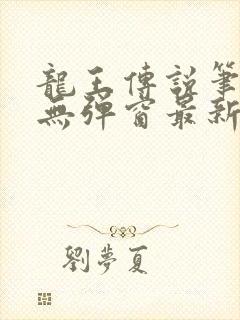 龍王傳說筆
無彈窗最新
劉夢夏